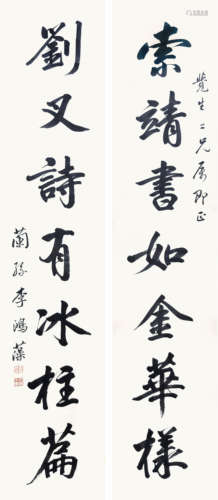 索靖書如金華樣
覺生二兄属即正
劉叉詩有冰柱篇
蘭孫李鴻藻